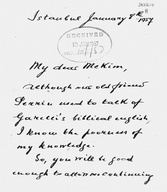 Istanbul January 8th 1954
RECEIVED
My dear McKim,
although our old friend
Perrin used to talk of
Garelli's biblical english,
I know the poorness of
my knowledge.
So, you will be good
enough to allow me continuing